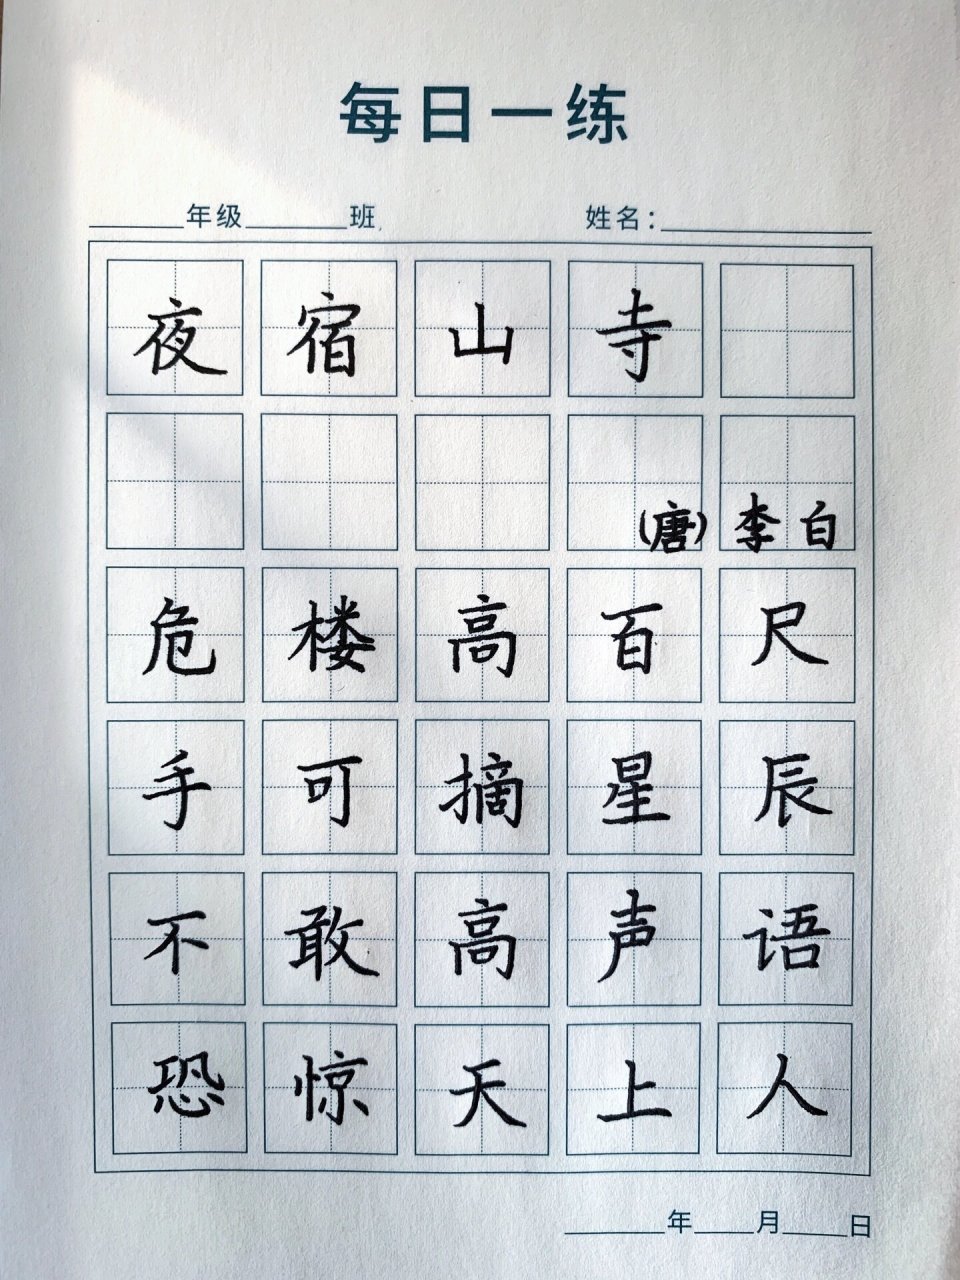 每日一练
____年级____班 姓名：________
夜宿山寺
（唐）李白
危楼高百尺
手可摘星辰
不敢高声语
恐惊天上人
____年__月__日